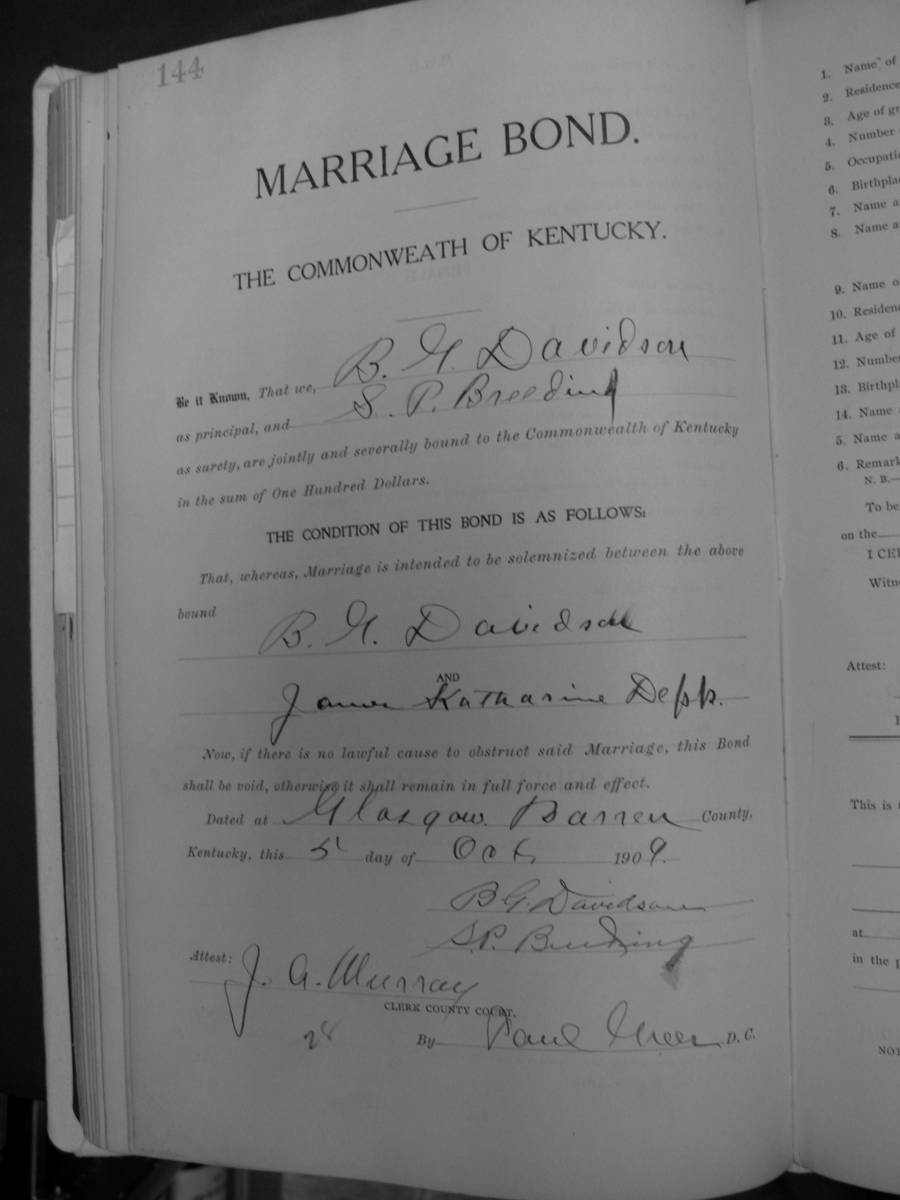 144
MARRIAGE BOND.
THE COMMONWEATH OF KENTUCKY.
Be it Known, That we, B. G. Davidson
as principal, and S. P. Breeding
as surety, are jointly and severally bound to the Commonwealth of Kentucky
in the sum of One Hundred Dollars.
THE CONDITION OF THIS BOND IS AS FOLLOWS:
That, whereas, Marriage is intended to be solemnized between the above
bound B. G. Davidson
AND
Katharine Depp.
Now, if there is no lawful cause to obstruct said Marriage, this Bond
shall be void, otherwise it shall remain in full force and effect.
Dated at Glasgow. Barren County,
Kentucky, this 5 day of Oct 1909.
B G. Davidson
S.P. Breeding
Attest: J. A. Murray
CLERK COUNTY COURT.
28
By Paul Greer D. C.
1. Name of
2. Residence
3. Age of
4. Number
5.
6.
7. Name
8. Name
9. Name
10.
11. Age of
12. Number
13.
14. Name
5. Name
6.
N. B.—
To be
on the
I
Attest:
This is
at
in the